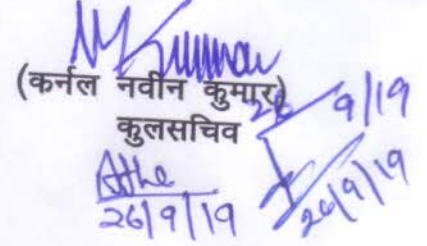 N Kumar
(कर्नल नवीन कुमार)
26/9/19
कुलसचिव
26/9/19
26/9/19